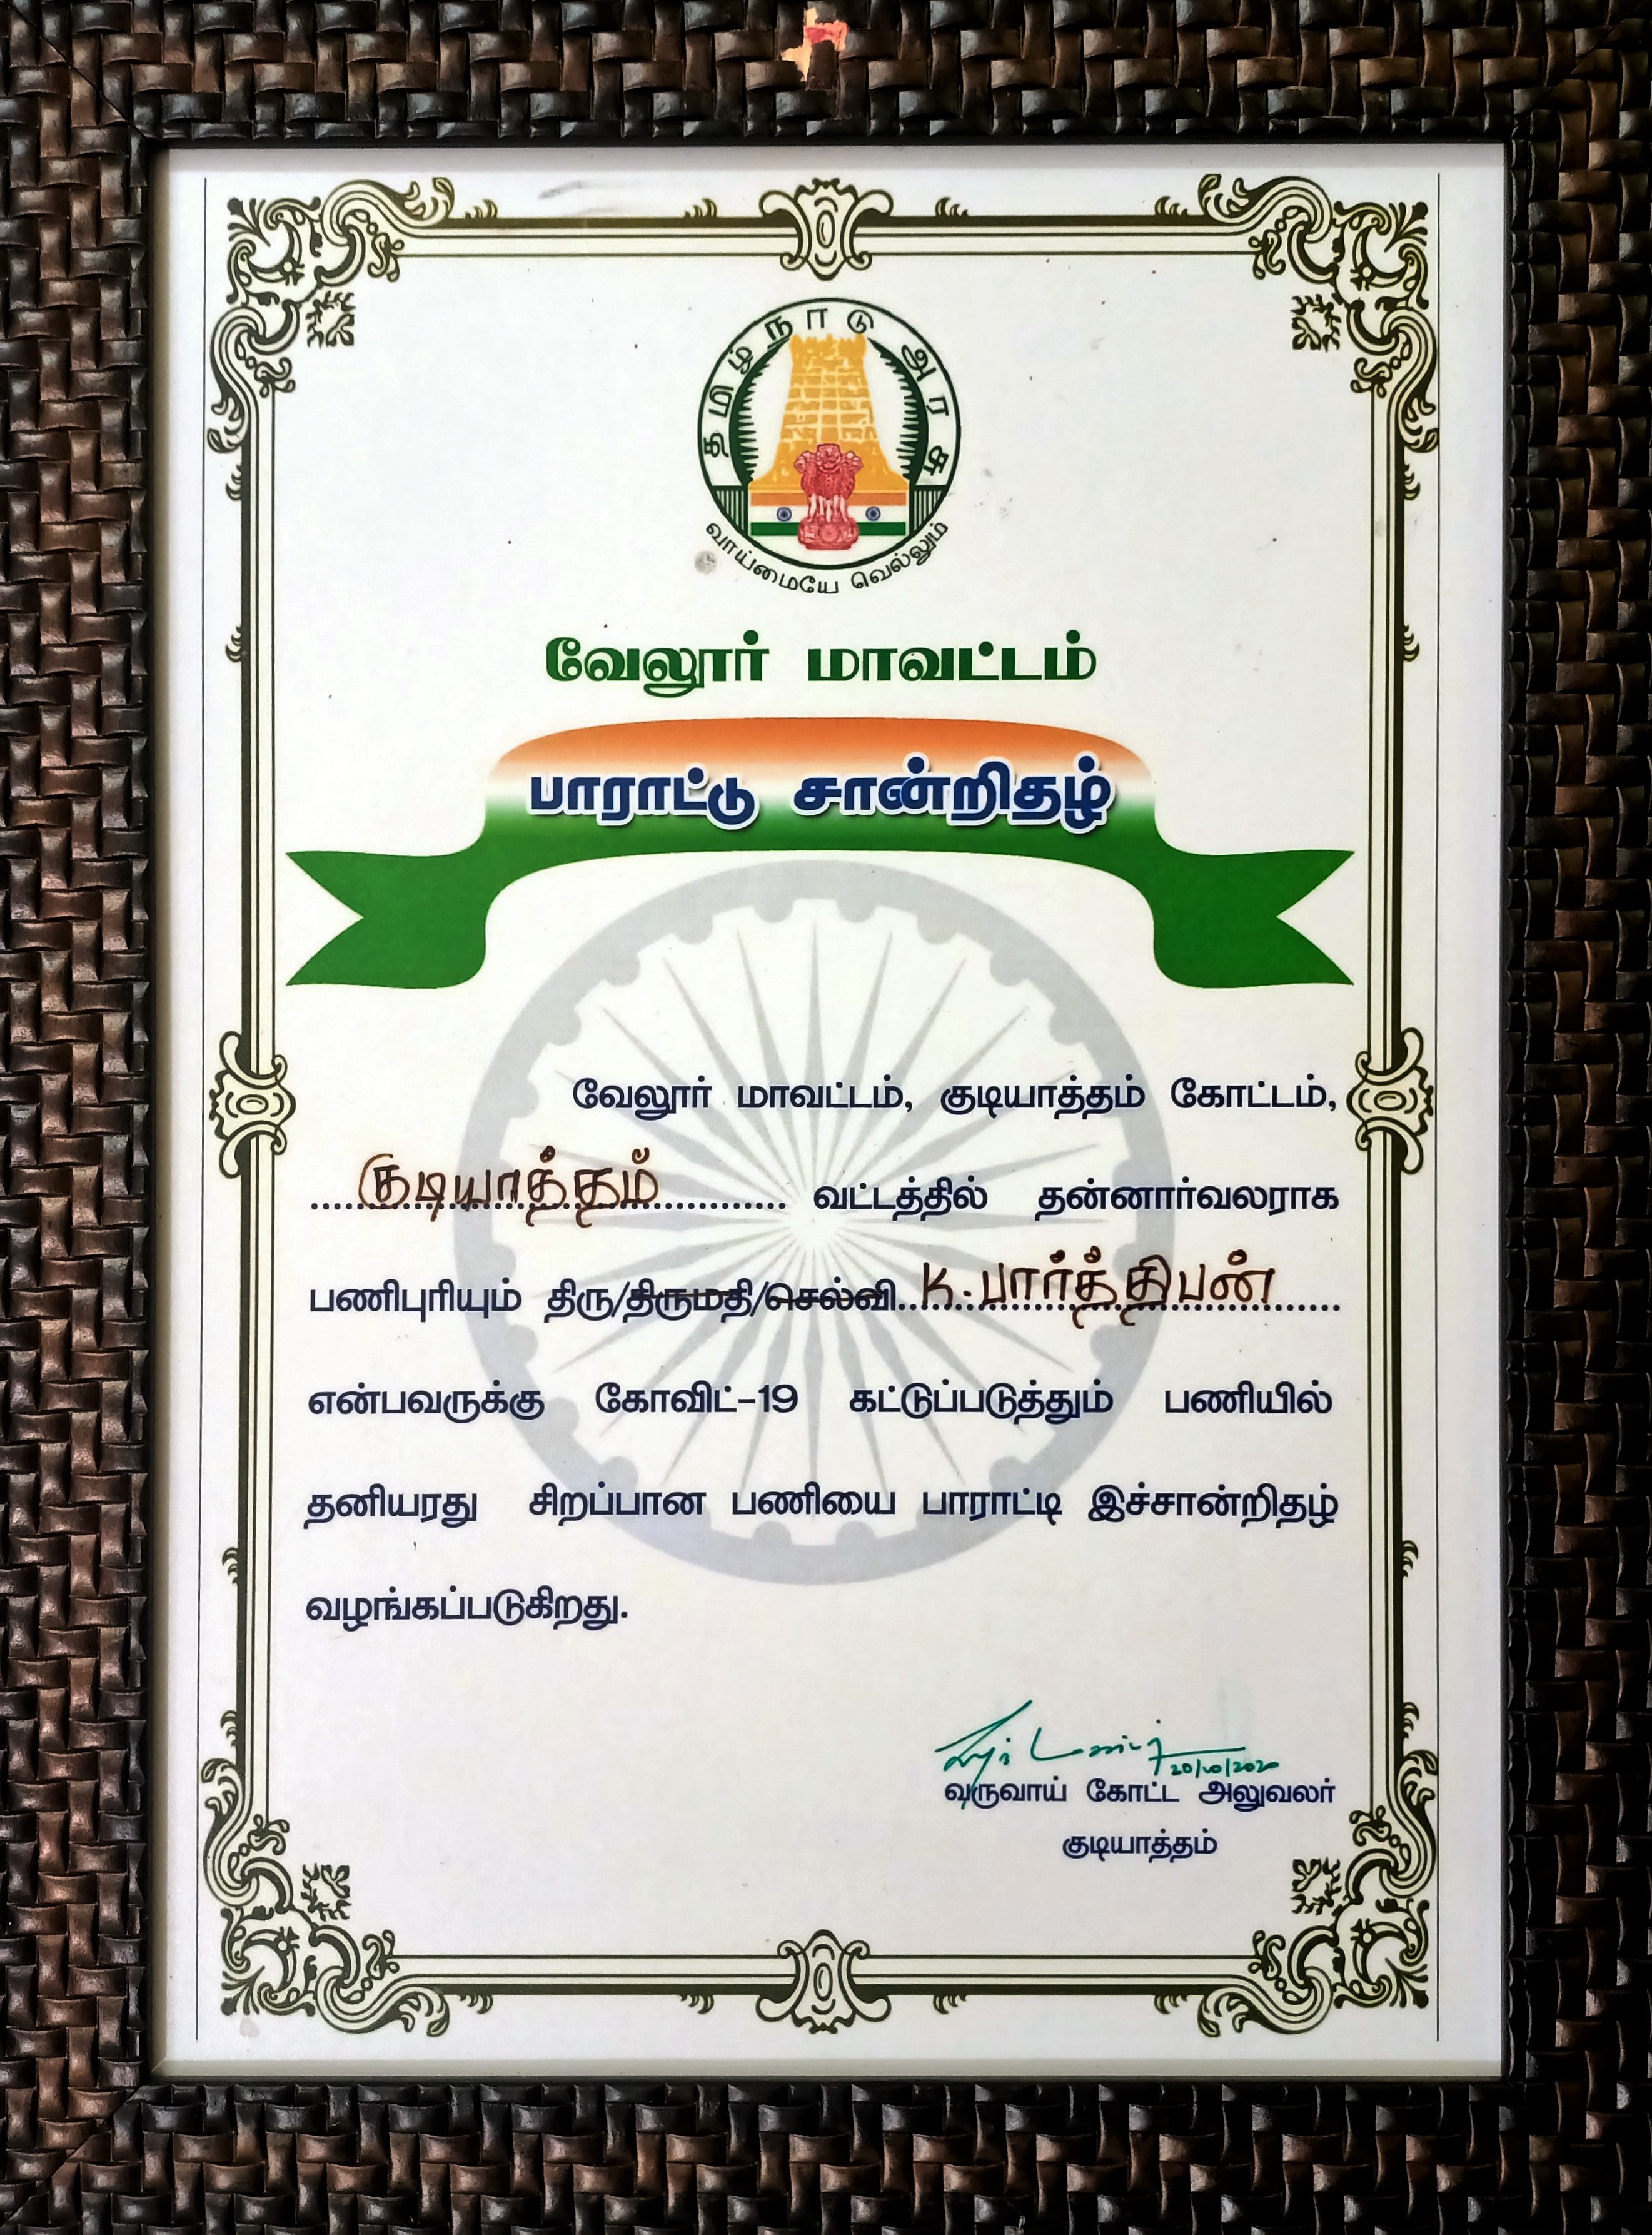 தமிழ்நாடு அரசு
வாய்மையே வெல்லும்
வேலூர் மாவட்டம்
பாராட்டு சான்றிதழ்
வேலூர் மாவட்டம், குடியாத்தம் கோட்டம்,
குடியாத்தம் வட்டத்தில் தன்னார்வலராக
பணிபுரியும் திரு/திருமதி/செல்வி K. பார்த்திபன்
என்பவருக்கு கோவிட்-19 கட்டுப்படுத்தும் பணியில்
தனியரது சிறப்பான பணியை பாராட்டி இச்சான்றிதழ்
வழங்கப்படுகிறது.
20/10/2020
வருவாய் கோட்ட அலுவலர்
குடியாத்தம்